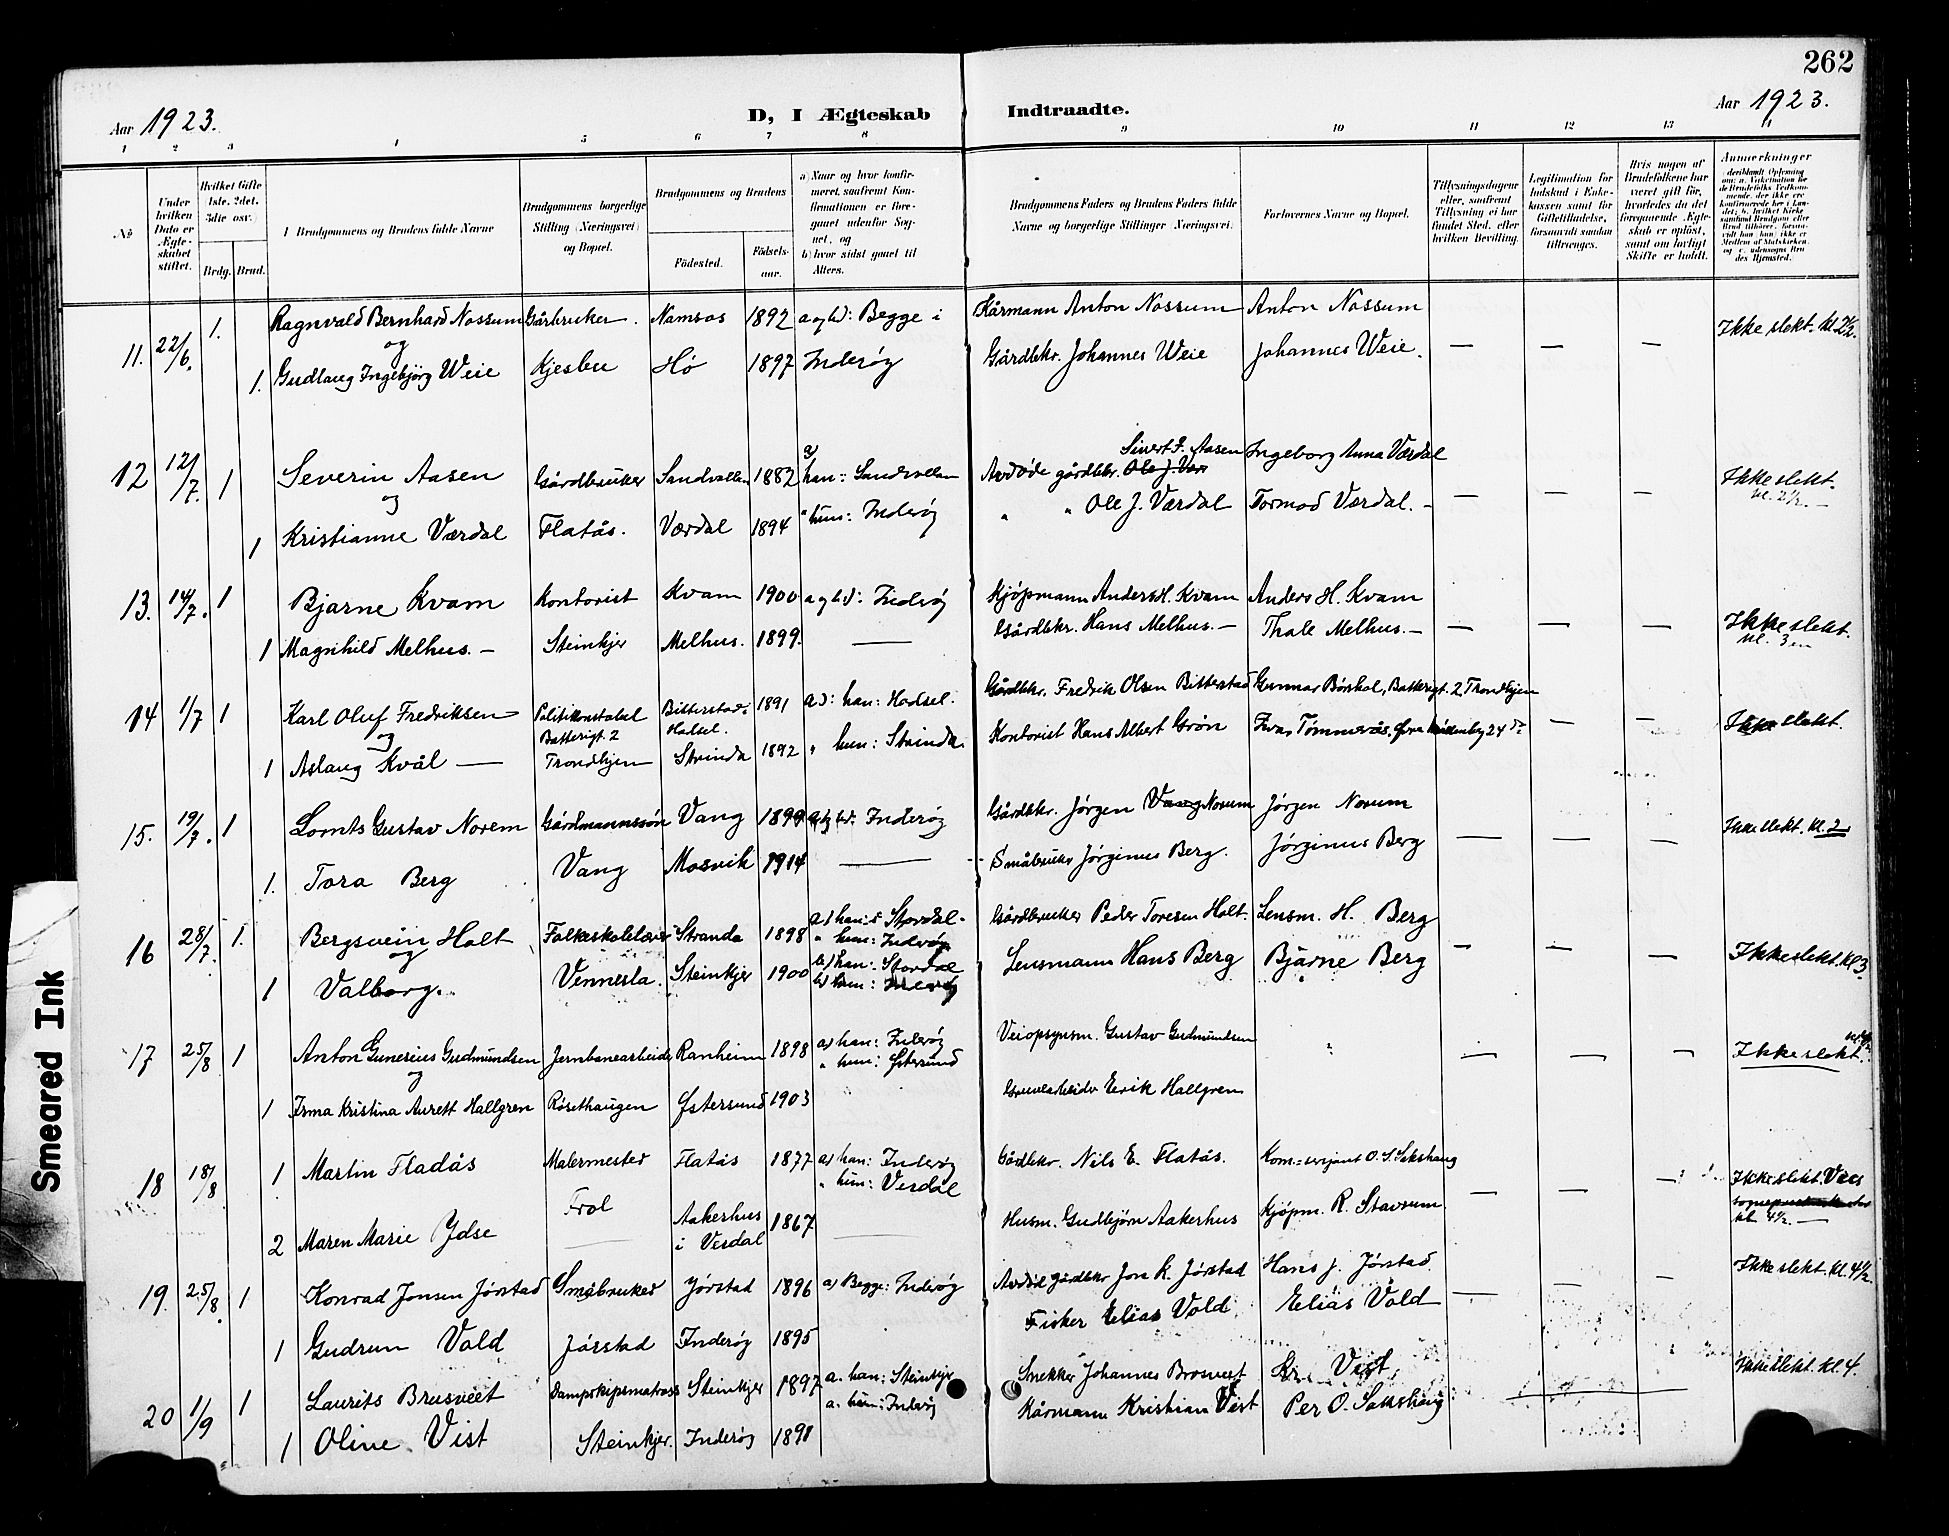 262
Aar 1923.
D, I Ægteskab Indtraadte.
Aar 1923.
1 2 3 4 5 6 7 8 9 10 11 12 13 14
No
Under hvilken Dato er Ægteskabet stiftet.
Hvilket Gifte 1ste, 2det, 3die osv.)
Brdg. Brud.
Brudgommens og Brudens fulde Navne
Brudgommens borgerlige Stilling (Næringsvei) og Bopæl.
Brudgommens og Brudens
Fødested.
Fødselsaar.
a) Naar og hvor konfirmeret, saafremt Konfirmationen er foregaaet udenfor Sognet, og
b) hvor sidst gaaet til Alters.
Brudgommens Faders og Brudens Faders fulde Navne og borgerlige Stillinger (Næringsvei)
Forlovernes Navne og Bopæl.
Tillysningsdagene eller, saafremt Tillysning ei har fundet Sted, efter hvilken Bevilling.
Legitimation for Indskud i Enkekassen samt for Giftetilladelse, forsaavidt saadan tiltrænges.
Hvis nogen af Brudefolkene har været gift før, hvorledes da det foregaaende Ægteskab er opløst, samt om lovligt Skifte er holdt.
Anmærkninger
11. 22/6. 1. Ragnvald Bernhard Nossum Gårbruker. Namsos 1892 a og b): Begge i Kårmann Anton Nossum Anton Nossum Ikke slekt. kl 2½.
og
1. Gudlaug Ingebjørg Weie Kjesbu Hó 1897 Inderøy Gårdbkr. Johannes Weie Johannes Weie. — — —
12 12/7. 1 Severin Aasen Gårdbruker Sandvollan 1882 a) han: Sandvollan Avdøde gårdbkr. Ole J. Vær Sivert F. Aasen Ingeborg Anna Værdal Ikke slekt. kl. 2½. —
og
1 Kristianne Værdal Flatås. Værdal 1894 " hun: Inderøy " " Ole J. Værdal Tormod Værdal. — — — —
13. 14/7. 1 Bjarne Kvam Kontorist Kvam 1900 a og b): Inderøy Kjøpmann Anders H. Kvam Anders H. Kvam
1 Magnhild Melhus. — Steinkjer Melhus. 1899. — Gårdbkr. Hans Melhus. — Thale Melhus. — — — — Ikke slekt. kl. 3 em
14 1/7 1 Karl Oluf Fredriksen Politikonstabel Batterigt. 2 Bitterstad, Hadsel. 1891 a): han: Hadsel. Gårdbkr. Fredrik Olsen Bitterstad Gunnar Børshol, Batterigt. 2 Trondhjem
og
1 Aslaug Kvål — Trondhjem Strinda 1892 " hun: Strinda. Kontorist Hans Albert Grøn Ivar Tømmerås, 24 do — — Ikke slekt.
15. 19/7. 1 Lornts Gustav Norem Gårdmannssøn Vang 1899 a og b): Inderøy Gårdbkr. Jørgen Vang Norum Jørgen Norum Ikke slekt. kl. 2
1. Tora Berg Vang Mosvik 1914 — Småbruker Jørginus Berg. Jørginus Berg — — —
16 28/7. 1. Bergsvein Holt Folkeskolelærer Stranda 1898 a) han: Stordal. " hun: Inderøy Gårdbruker Peder Toresen Holt. Lensm. H. Berg
og
1 Valborg. Vennesla. Steinkjer 1900 b) han: Stordal b) hun: Inderøy Lensmann Hans Berg Bjarne Berg — — — Ikke slekt. kl 3.
17 25/8 1 Anton Gunerius Gudmundsen Jernbanearbeider Ranheim 1898 a) han: Inderøy " hun: Østersund Veiopsynsm. Gustav Gudmundsen — — — Ikke slekt.
og
1 Irma Kristina Aurett Hallgren Røsethaugen Østersund 1903 Gruvearbeider Eerik Hallgren
18 18/8 1 Martin Fladås Malermester Flatås 1877 a) han: Inderøy " hun: Verdal Gårdbkr. Nils E. Flatås. Kom.-sersjant O. S. Sakshaug Ikke slekt. kl 4½. —
2 Maren Marie Ydse Frol — Aakerhus i Verdal 1867 — Husm. Gudbjørn Aakerhus Kjøpm. R. Stavrum — — —
19. 25/8. 1 Konrad Jonsen Jørstad Småbruker Jørstad 1896 a) Begge: Inderøy Avdød gårdbkr Jon K. Jørstad Hans J. Jørstad. Ikke slekt. kl. 4½.
1 Gudrun Vold Jørstad Inderøy 1895 Fisker Elias Vold. Elias Vold — — —
20 1/9 1 Laurits Brusveet Dampskipsmatros Steinkjer 1897 a. han: Steinkjer a. hun: Inderøy Snekker Johannes Brosveet Kr. Vist, Ikke slekt. kl. 4.
1 Oline Vist Steinkjer. Inderøy 1898 Kårmann Kristian Vist Per O. Sakshaug — — —
Smeared Ink